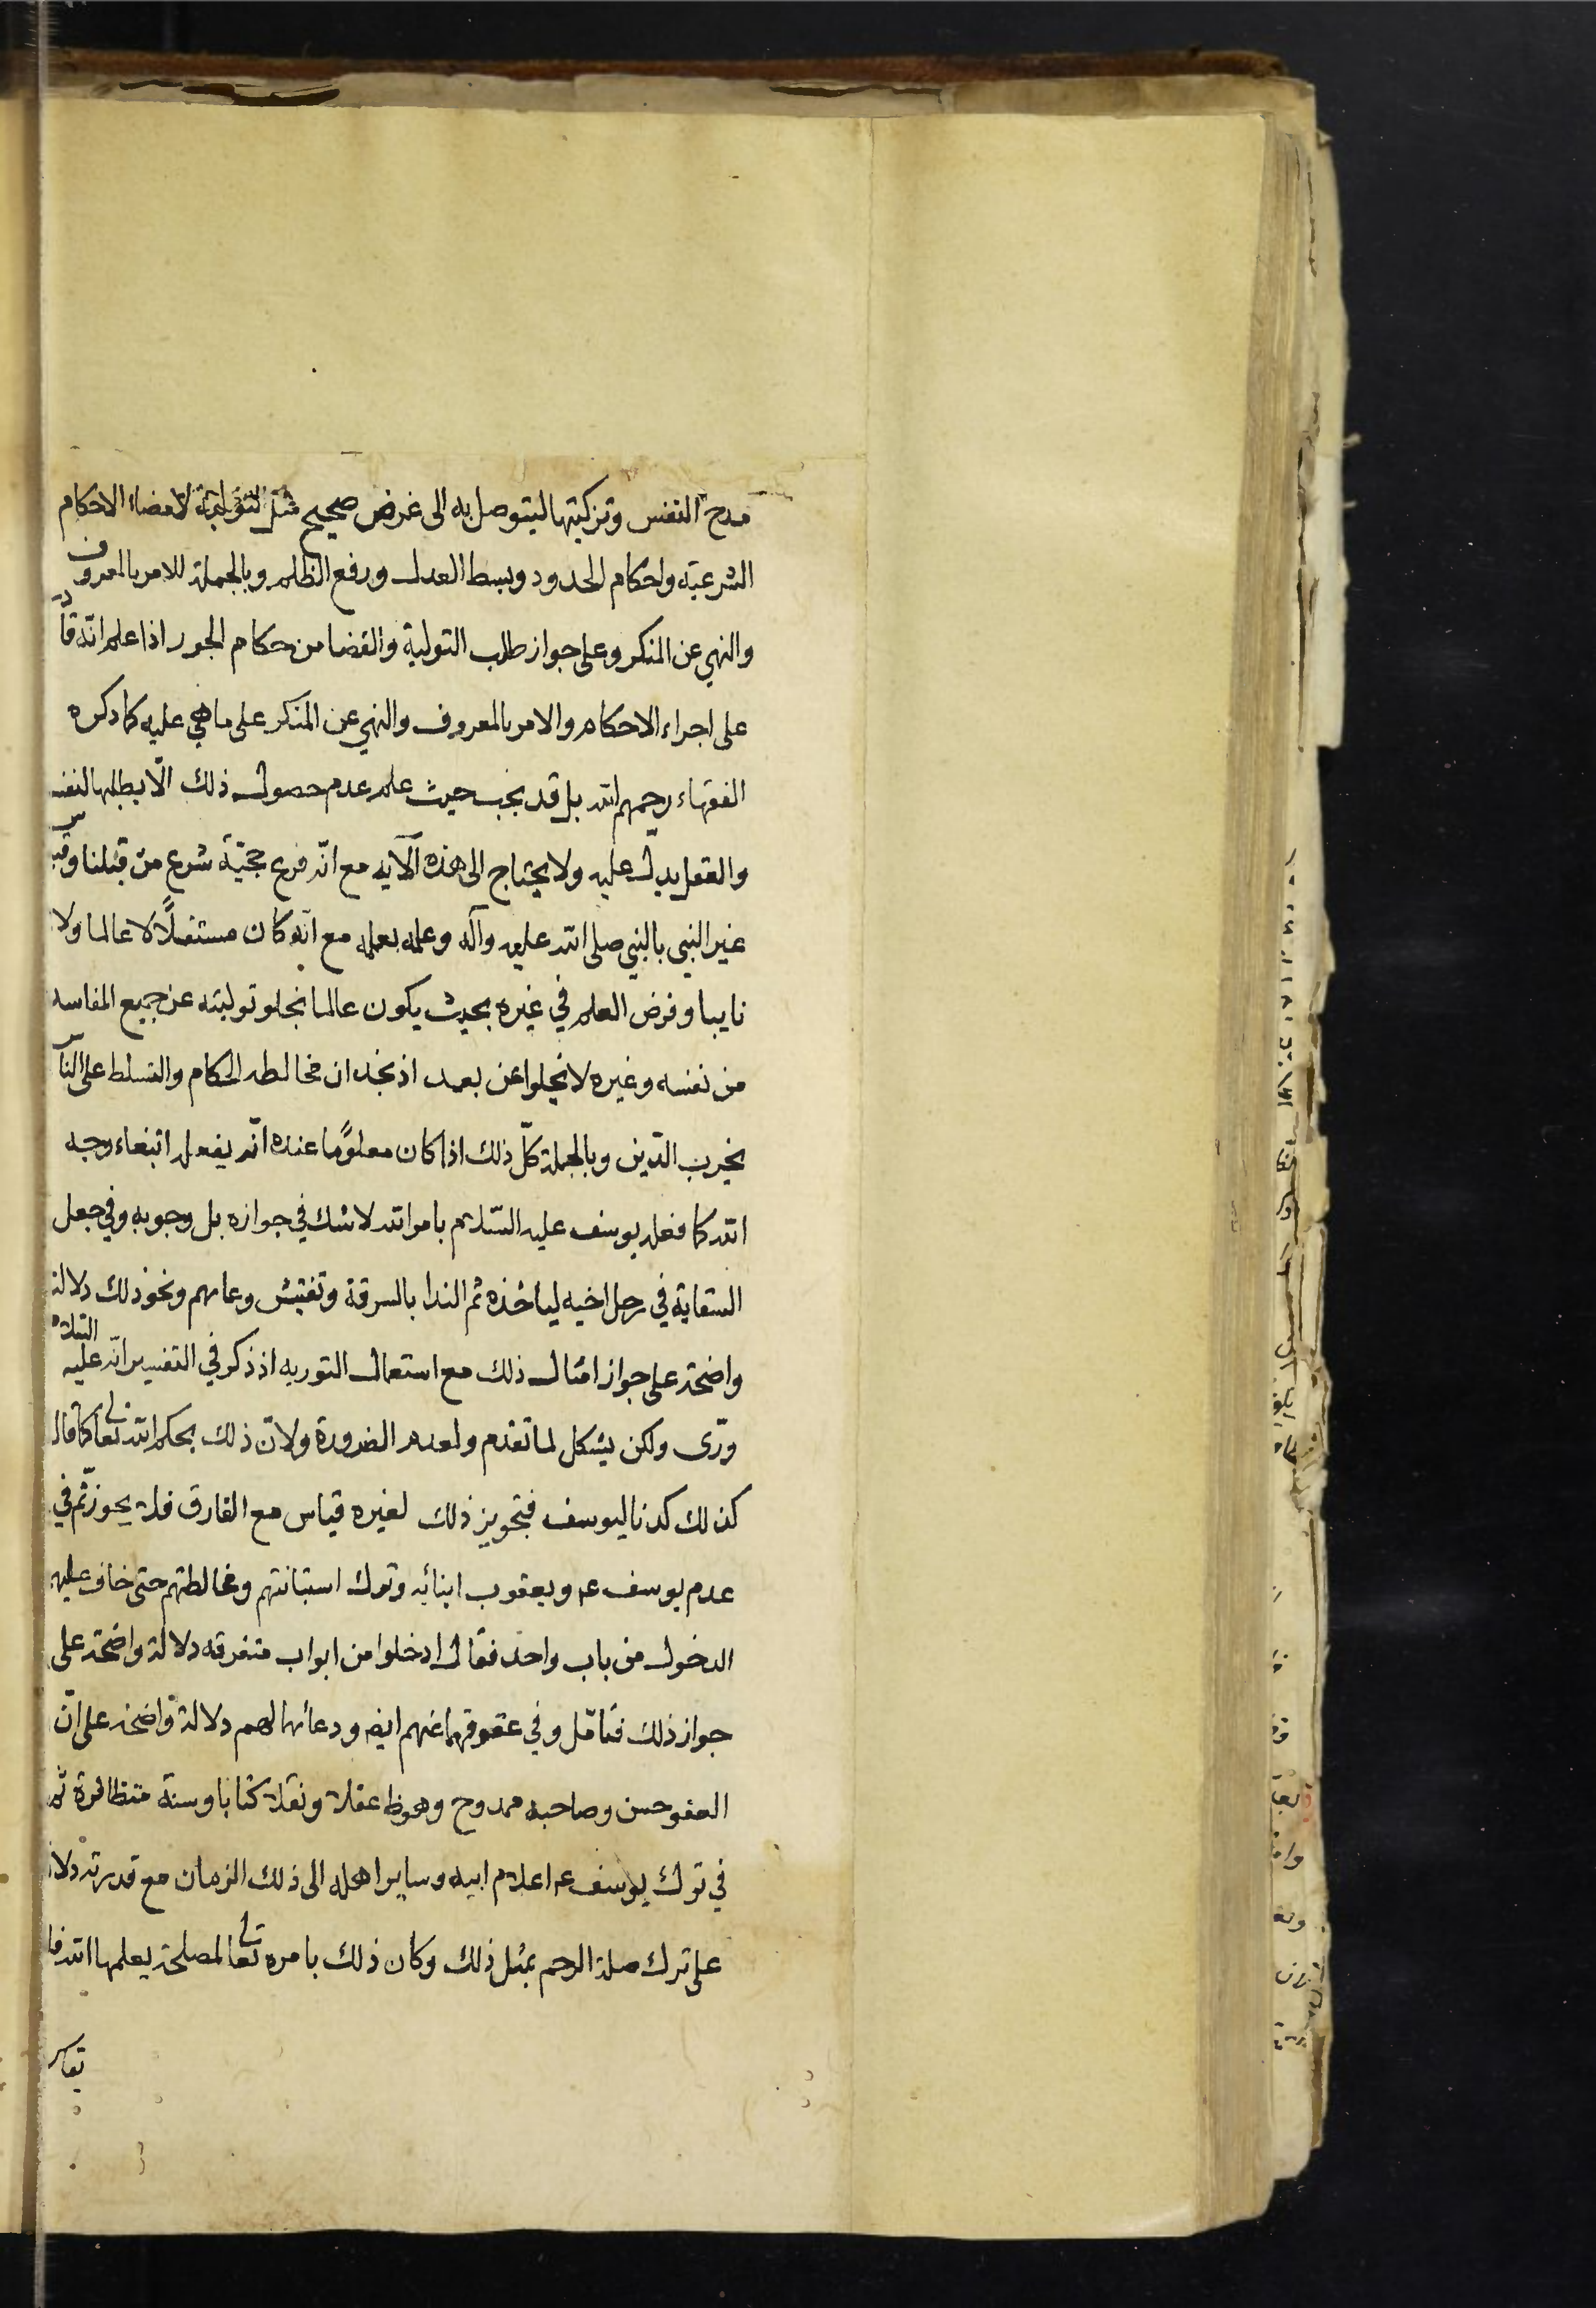 مدح النفس وتزكيتها ليتوصل به الى غرض صحيح مثل التولية لامضاء الاحكام
الشرعيّة واحكام الحدود وبسط العدل ورفع الظلم وبالجملة للامر بالمعروف
والنهي عن المنكر وعلى جواز طلب التولية والقضا من حكام الجور اذا علم انّه قادر
على اجراء الاحكام والامر بالمعروف والنهي عن المنكر على ما هي عليه كما ذكره
الفقهاء رحمهم الله بل قد يجب حيث علم عدم حصول ذلك الّا بطلبها لنفسه
والعقل يدل عليه ولا يحتاج الى هذه الآية مع انّه فرع حجّية شرع من قبلنا وقيس
غير النبي بالنبي صلى الله عليه وآله وعلمه بعلمه مع انّه كان مستقلًّا لا عالما ولا
نايبا وفرض العلم في غيره بحيث يكون عالما بخلو توليته عن جميع المفاسد
من نفسه وغيره لا يخلوا عن بعد اذ نجد ان مخالطه الحكام والتسلط على الناس
يخرب الدّين وبالجملة كلّ ذلك اذا كان معلومًا عنده انّه يفعل ابتغاء وجه
الله كما فعله يوسف عليه السّلام بامر الله لا شك في جوازه بل وجوبه وفي جعل
السقاية في رحل اخيه لياخذه ثم الندا بالسرقة وتفتيش وعائهم ونحو ذلك دلالة
واضحة على جواز امثال ذلك مع استعمال التوريه اذ ذكر في التفسير انّه عليه السلام
ورّى ولكن يشكل لما تقدم ولعدم الضرورة ولانّ ذلك بحكم الله تعالى كما قال
كذلك كدنا ليوسف فتجويز ذلك لغيره قياس مع الفارق فلا يجوز ثم في
عدم يوسف عم ويعقوب ابنائه وترك استبانتهم ومخالطتهم حتى خاف عليهم
الدخول من باب واحد فقال ادخلوا من ابواب متفرقه دلالة واضحة على
جواز ذلك فتامّل وفي عفوهما عنهم ايضا ودعائهما لهم دلالة واضحة على انّ
العفو حسن وصاحبه ممدوح وهو ظ عقلا ونقلا كتابا وسنة متظافرة ثم
في ترك يوسف عم اعلام ابيه وساير اهله الى ذلك الزمان مع قدرته دلالة
على ترك صلة الرحم بمثل ذلك وكان ذلك بامره تعالى لمصلحة يعلمها الله فا